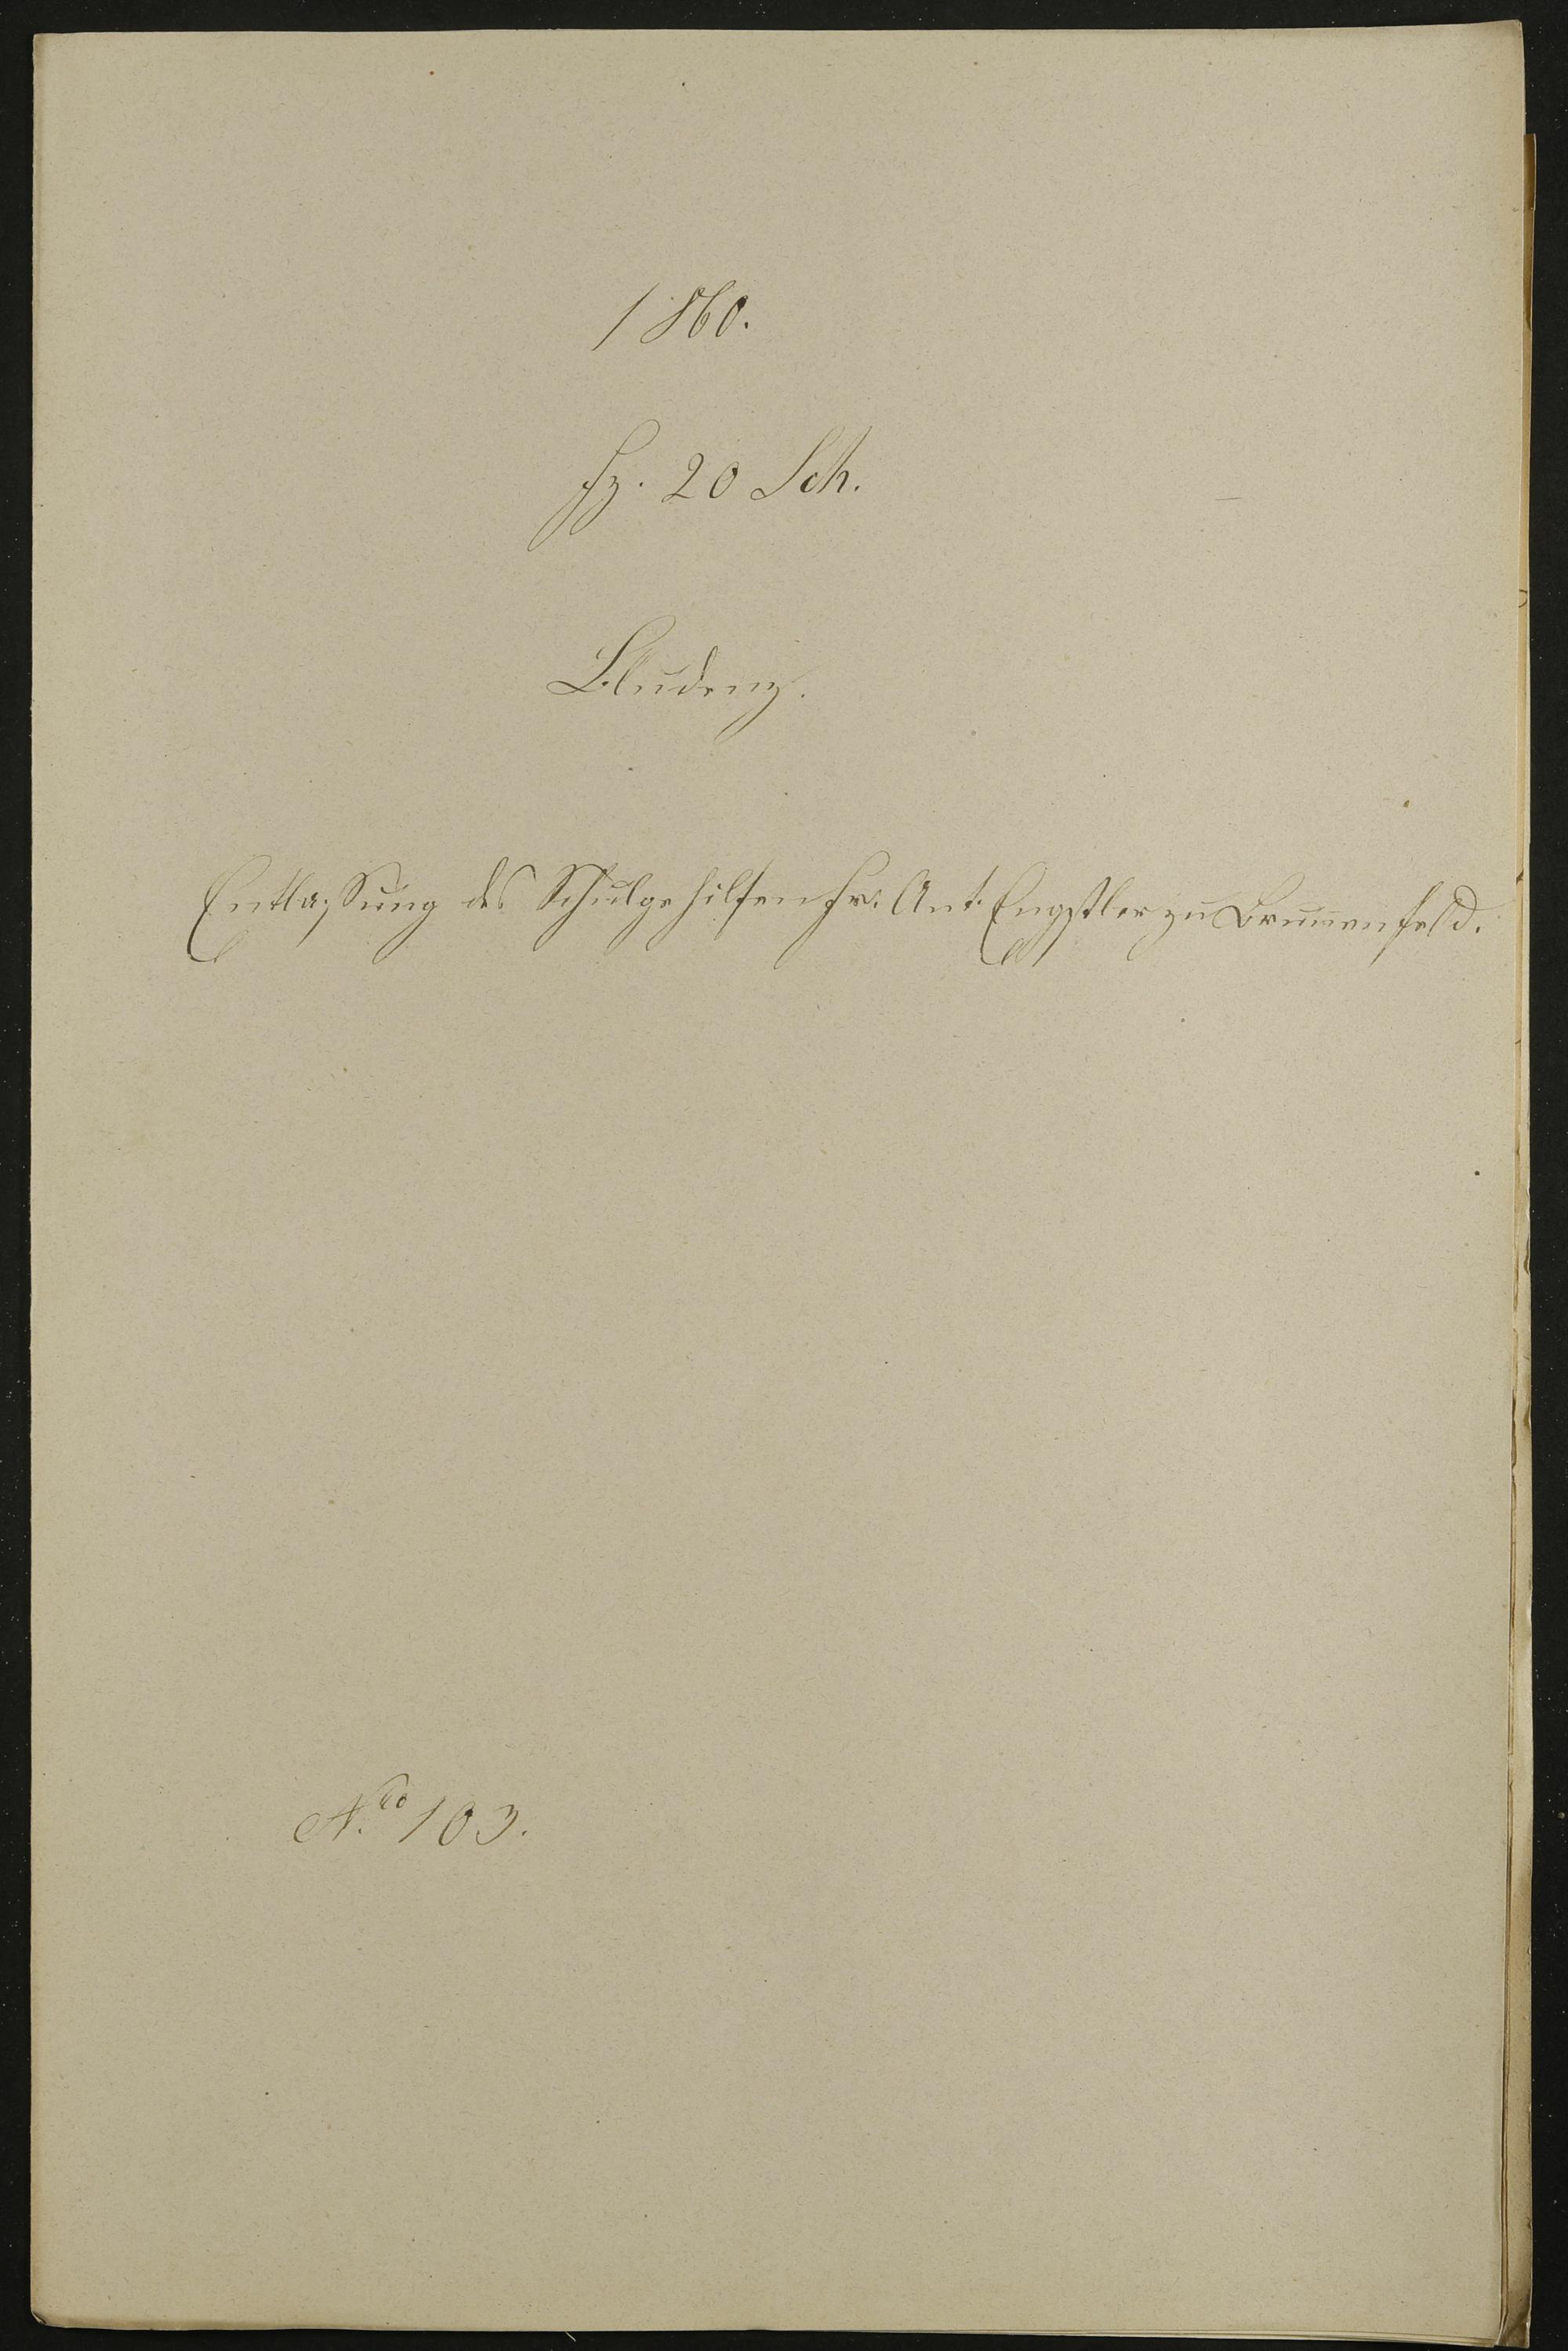 1860.
Fz. 20 Sch.
Bludenz.
Entlassung des Schulgehilfen Fr. Ant. Engstler zu Brunnenfeld.
N.ro 103.